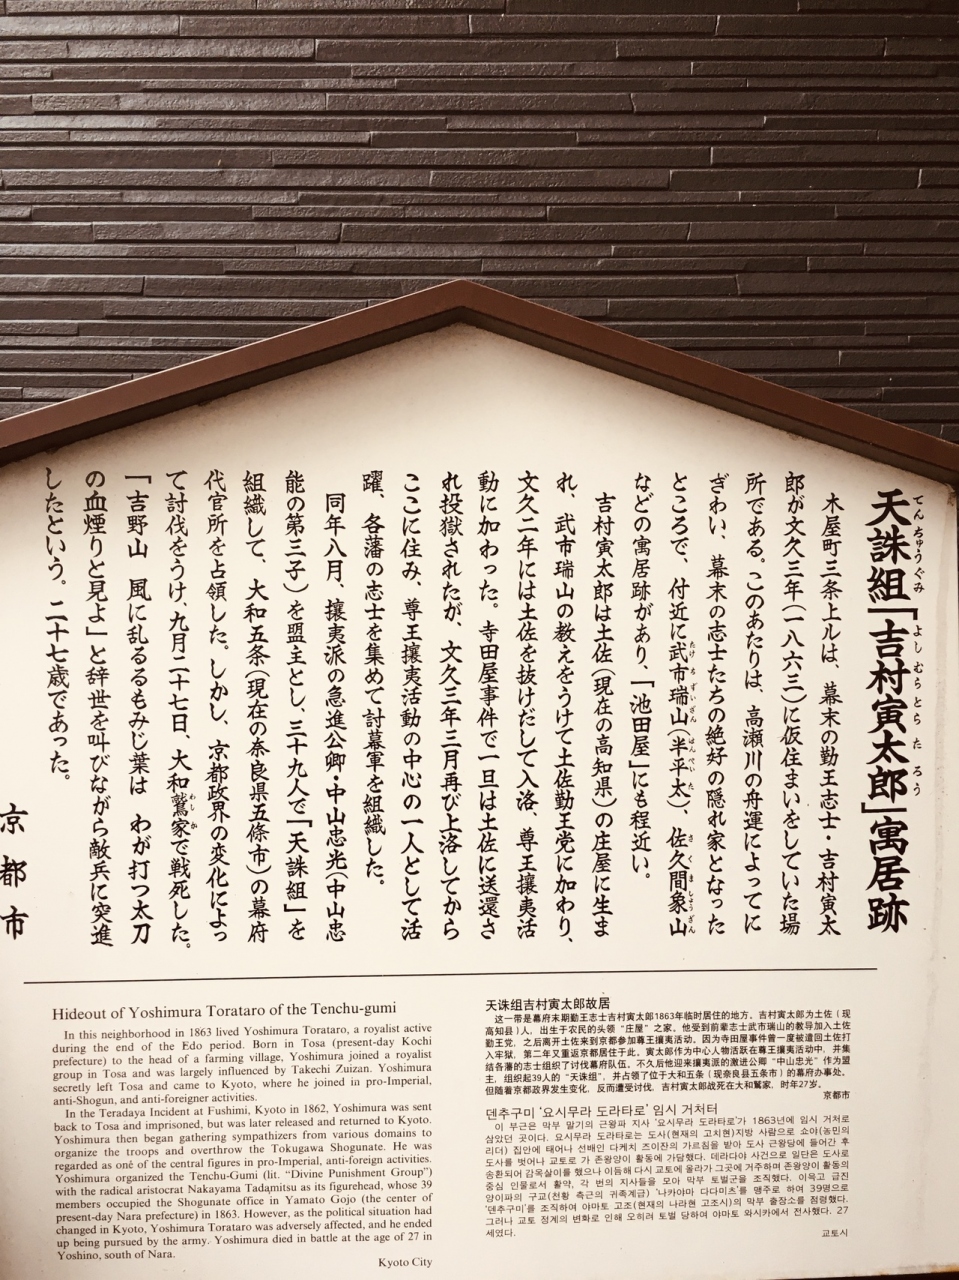 天誅組「吉村寅太郎」寓居跡
てんちゅうぐみ よしむらとらたろう
木屋町三条上ルは、幕末の勤王志士・吉村寅太
郎が文久三年(一八六三)に仮住まいをしていた場
所である。このあたりは、高瀬川の舟運によってに
ぎわい、幕末の志士たちの絶好の隠れ家となった
ところで、付近に武市瑞山(半平太)、佐久間象山
たけちずいざん はんぺいた さくましょうざん
などの寓居跡があり、「池田屋」にも程近い。
吉村寅太郎は土佐(現在の高知県)の庄屋に生ま
れ、武市瑞山の教えをうけて土佐勤王党に加わり、
文久二年には土佐を抜けだして入洛、尊王攘夷活
動に加わった。寺田屋事件で一旦は土佐に送還さ
れ投獄されたが、文久三年三月再び上洛してから
ここに住み、尊王攘夷活動の中心の一人として活
躍、各藩の志士を集めて討幕軍を組織した。
同年八月、攘夷派の急進公卿・中山忠光(中山忠
能の第三子)を盟主とし、三十九人で「天誅組」を
組織して、大和五条(現在の奈良県五條市)の幕府
代官所を占領した。しかし、京都政界の変化によっ
て討伐をうけ、九月二十七日、大和鷲家で戦死した。
わしか
「吉野山 風に乱るるもみじ葉は わが打つ太刀
の血煙りと見よ」と辞世を叫びながら敵兵に突進
したという。二十七歳であった。
京都市
Hideout of Yoshimura Torataro of the Tenchu-gumi
In this neighborhood in 1863 lived Yoshimura Torataro, a royalist active
during the end of the Edo period. Born in Tosa (present-day Kochi
prefecture) to the head of a farming village, Yoshimura joined a royalist
group in Tosa and was largely influenced by Takechi Zuizan. Yoshimura
secretly left Tosa and came to Kyoto, where he joined in pro-Imperial,
anti-Shogun, and anti-foreigner activities.
In the Teradaya Incident at Fushimi, Kyoto in 1862, Yoshimura was sent
back to Tosa and imprisoned, but was later released and returned to Kyoto.
Yoshimura then began gathering sympathizers from various domains to
organize the troops and overthrow the Tokugawa Shogunate. He was
regarded as one of the central figures in pro-Imperial, anti-foreign activities.
Yoshimura organized the Tenchu-Gumi (lit. “Divine Punishment Group”)
with the radical aristocrat Nakayama Tadamitsu as its figurehead, whose 39
members occupied the Shogunate office in Yamato Gojo (the center of
present-day Nara prefecture) in 1863. However, as the political situation had
changed in Kyoto, Yoshimura Torataro was adversely affected, and he ended
up being pursued by the army. Yoshimura died in battle at the age of 27 in
Yoshino, south of Nara.
Kyoto City
天诛组吉村寅太郎故居
这一带是幕府末期勤王志士吉村寅太郎1863年临时居住的地方。吉村寅太郎为土佐(现
高知县)人,出生于农民的头领“庄屋”之家。他受到前辈志士武市瑞山的教导加入土佐
勤王党,之后离开土佐来到京都参加尊王攘夷活动。因为寺田屋事件曾一度被遣回土佐打
入牢狱,第二年又重返京都居住于此。寅太郎作为中心人物活跃在尊王攘夷活动中,并集
结各藩的志士组织了讨伐幕府队伍。不久后他迎来攘夷派的激进公卿“中山忠光”作为盟
主,组织起39人的“天诛组”,并占领了位于大和五条(现奈良县五条市)的幕府办事处。
但随着京都政界发生变化,反而遭受讨伐,吉村寅太郎战死在大和鷲家,时年27岁。
京都市
덴추구미 ‘요시무라 도라타로’ 임시 거처터
이 부근은 막부 말기의 근왕파 지사 ‘요시무라 도라타로’가 1863년에 임시 거처로
삼았던 곳이다. 요시무라 도라타로는 도사(현재의 고치현)지방 사람으로 쇼야(농민의
리더) 집안에 태어나 선배인 다케치 즈이잔의 가르침을 받아 도사 근왕당에 들어간 후
도사를 벗어나 교토로 가 존왕양이 활동에 가담했다. 데라다야 사건으로 일단은 도사로
송환되어 감옥살이를 했으나 이듬해 다시 교토에 올라가 그곳에 거주하며 존왕양이 활동의
중심 인물로서 활약, 각 번의 지사들을 모아 막부 토벌군을 조직했다. 이윽고 급진
양이파의 구교(천황 측근의 귀족계급) ‘나카야마 다다미츠’를 맹주로 하여 39명으로
‘덴추구미’를 조직하여 야마토 고조(현재의 나라현 고조시)의 막부 출장소를 점령했다.
그러나 교토 정계의 변화로 인해 오히려 토벌 당하여 야마토 와시카에서 전사했다. 27
세였다.
교토시